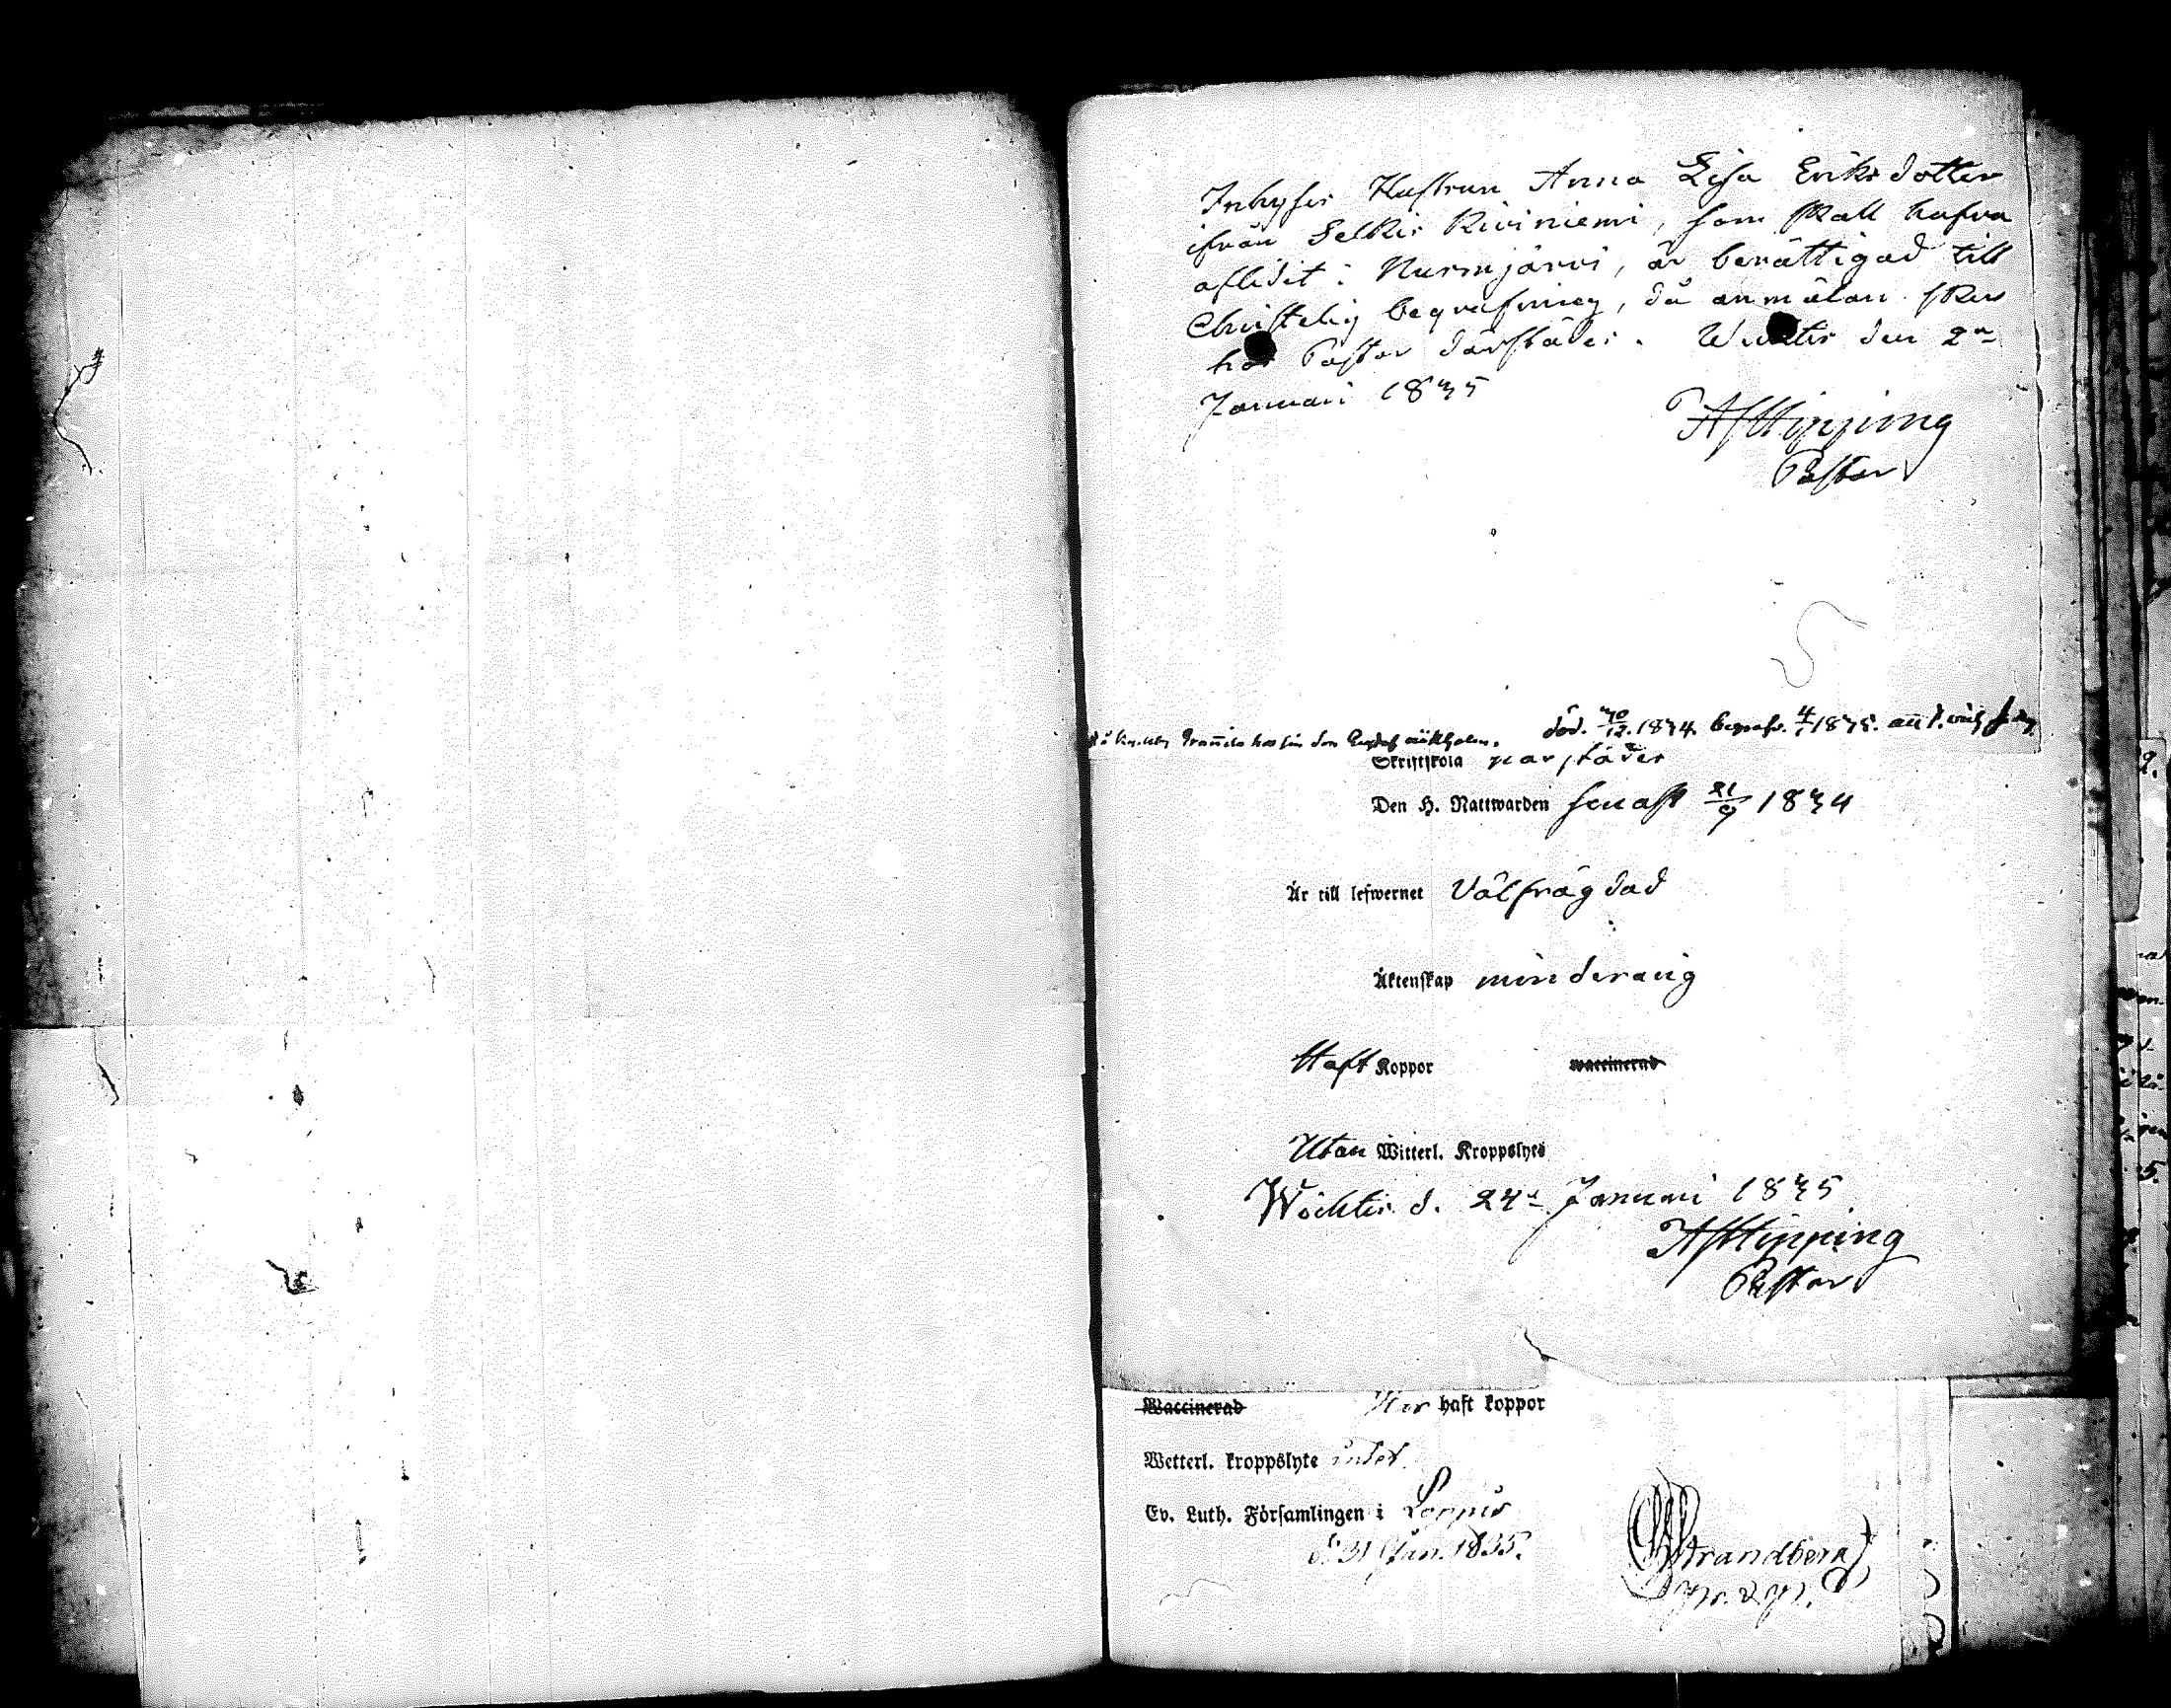 Inhyses Hustrun Anna Lisa Eriksdotter
ifrån Selkis Kiviniemi, som skall hafva
aflidit i Nurmjärvi, är berättigad till
Christelig begrafning, då anmälan sker
hos Pastor därstädes. Wichtis den 2n
Januari 1835
Pastor
hos sin son Gustaf
död. 30/12. 1834. begrafv. 4/1 1835.
Skriftskola därstädes
Den H. Nattwarden senast 21/9 1834
Är till lefwernet Välfrägdad
Äktenskap minderårig
Haft Koppor waccinerad
Utan Witterl. Kroppslyts
Wichtis d. 24n Januari 1835
Pastor
Waccinerad Har haft koppor
Wetterl. kroppslyte intet.
Ev. Luth. Församlingen i Loppis
d. 31 Jan. 1835.
Strandberg